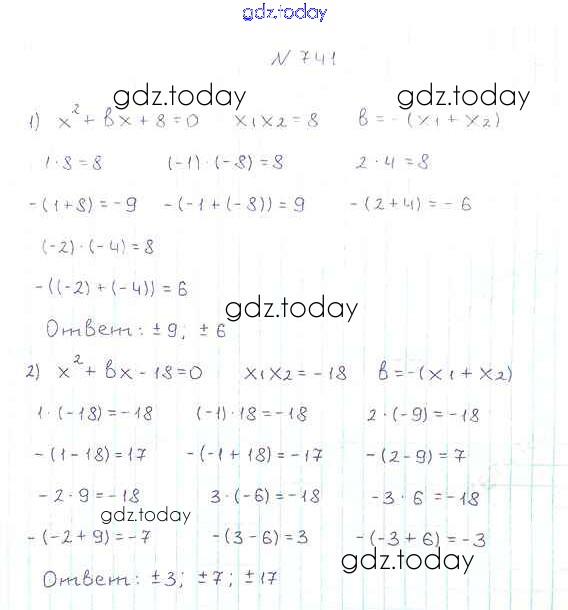 gdz.today
N 741
gdz.today gdz.today
1) x² + bx + 8 = 0 x1x2 = 8 b = -(x1 + x2)
1 · 8 = 8 (-1) · (-8) = 8 2 · 4 = 8
-(1+8) = -9 -(-1+(-8)) = 9 -(2+4) = -6
(-2) · (-4) = 8
-((-2) + (-4)) = 6
gdz.today
Ответ: ±9; ±6
2) x² + bx - 18 = 0 x1x2 = -18 b = -(x1 + x2)
1 · (-18) = -18 (-1) · 18 = -18 2 · (-9) = -18
-(1-18) = 17 -(-1+18) = -17 -(2-9) = 7
-2 · 9 = -18 3 · (-6) = -18 -3 · 6 = -18
gdz.today
-(-2+9) = -7 -(3-6) = 3 -(-3+6) = -3
gdz.today
Ответ: ±3; ±7; ±17